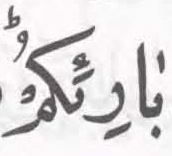 بَارِئِكُمْؕ